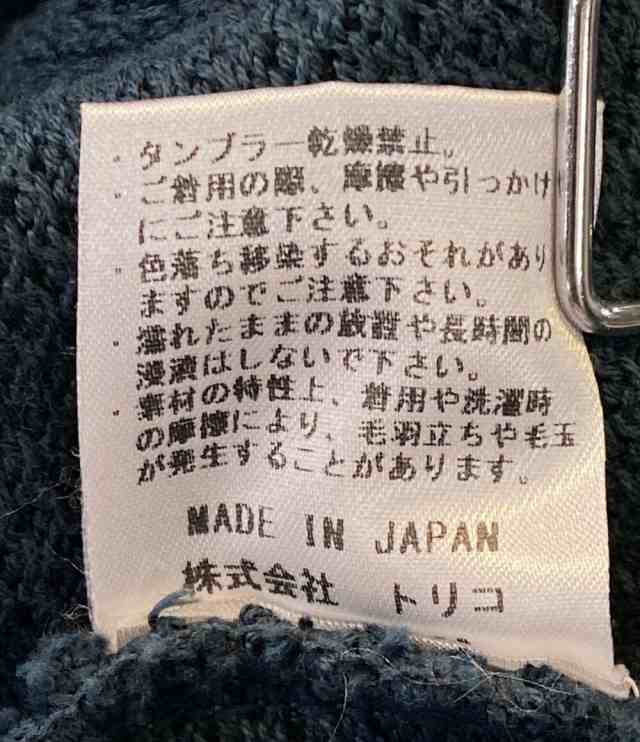 ・タンブラー乾燥禁止。
・ご着用の際、摩擦や引っかけ
にご注意下さい。
・色落ち移染するおそれがあり
ますのでご注意下さい。
・濡れたままの放置や長時間の
浸漬はしないで下さい。
・素材の特性上、着用や洗濯時
の摩擦により、毛羽立ちや毛玉
が発生することがあります。
MADE IN JAPAN
株式会社 トリコ